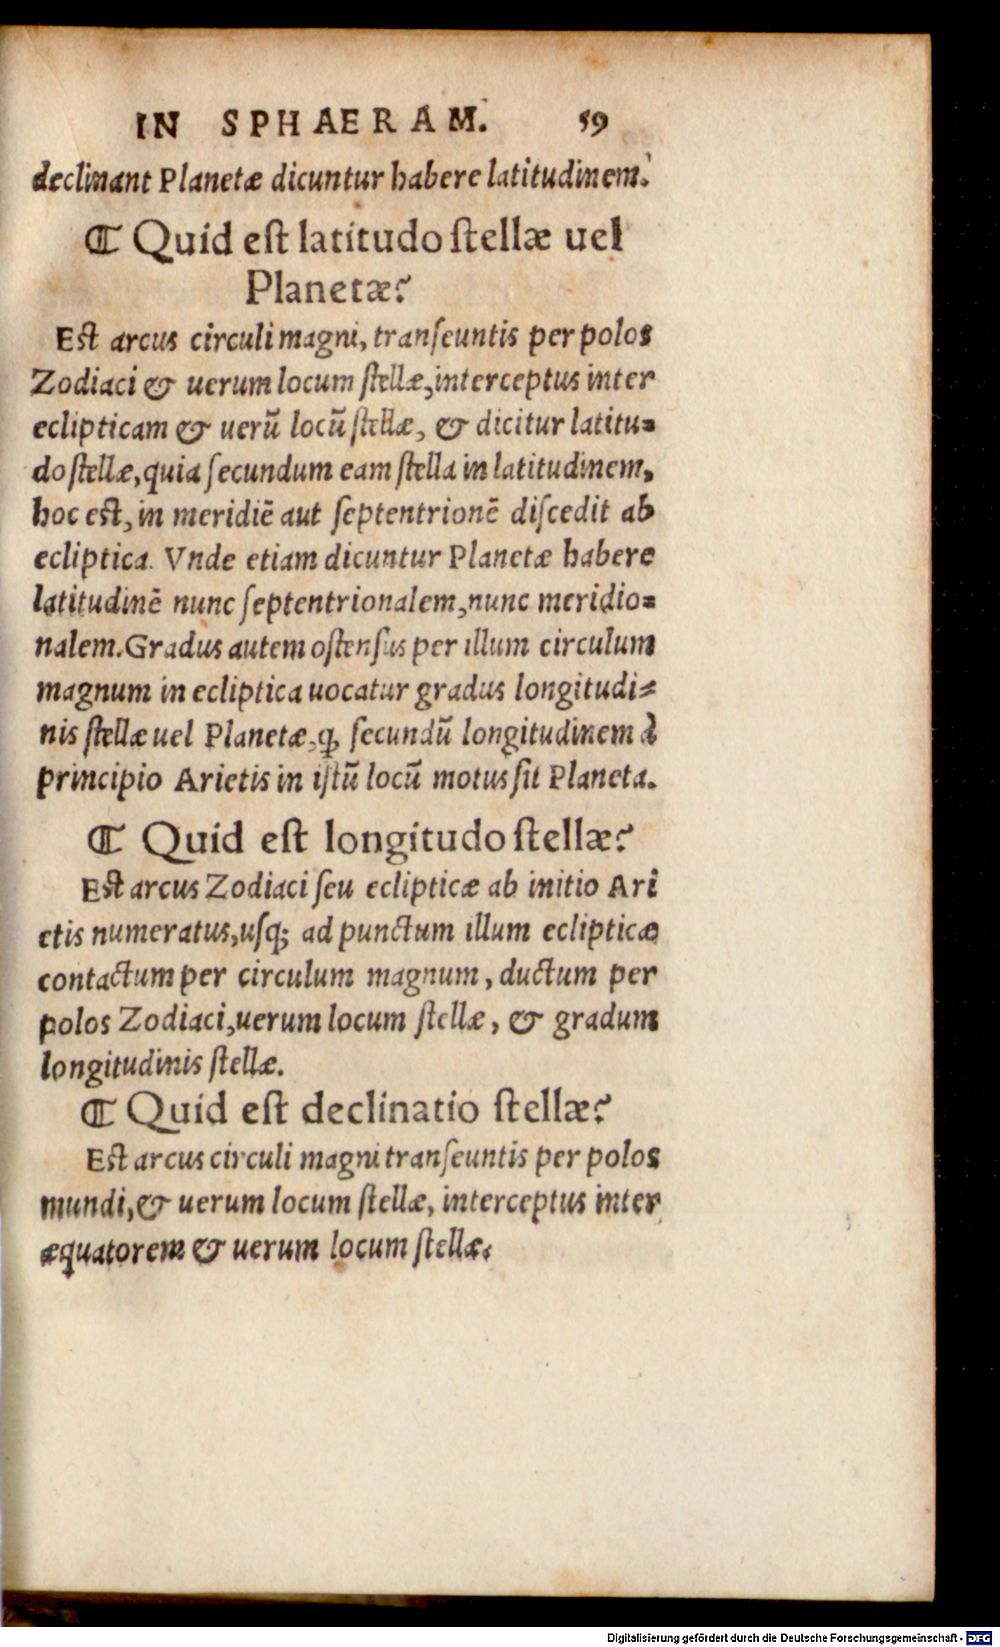 IN SPHAERAM. 59
declinant Planetæ dicuntur habere latitudinem.
⁋ Quid est latitudo stellæ uel
Planetæ?
Est arcus circuli magni, transeuntis per polos
Zodiaci & uerum locum stellæ, interceptus inter
eclipticam & uerũ locũ stellæ, & dicitur latitu=
do stellæ, quia secundum eam stella in latitudinem,
hoc est, in meridiẽ aut septentrionẽ discedit ab
ecliptica. Vnde etiam dicuntur Planetæ habere
latitudinẽ nunc septentrionalem, nunc meridio=
nalem. Gradus autem ostensus per illum circulum
magnum in ecliptica uocatur gradus longitudi=
nis stellæ uel Planetæ, ꝙ secundũ longitudinem à
principio Arietis in istũ locũ motus sit Planeta.
⁋ Quid est longitudo stellæ?
Est arcus Zodiaci seu eclipticæ ab initio Ari
etis numeratus, usq; ad punctum illum eclipticæ
contactum per circulum magnum, ductum per
polos Zodiaci, uerum locum stellæ, & gradum
longitudinis stellæ.
⁋ Quid est declinatio stellæ?
Est arcus circuli magni transeuntis per polos
mundi, & uerum locum stellæ, interceptus inter
æquatorem & uerum locum stellæ.
Digitalisierung gefördert durch die Deutsche Forschungsgemeinschaft - DFG